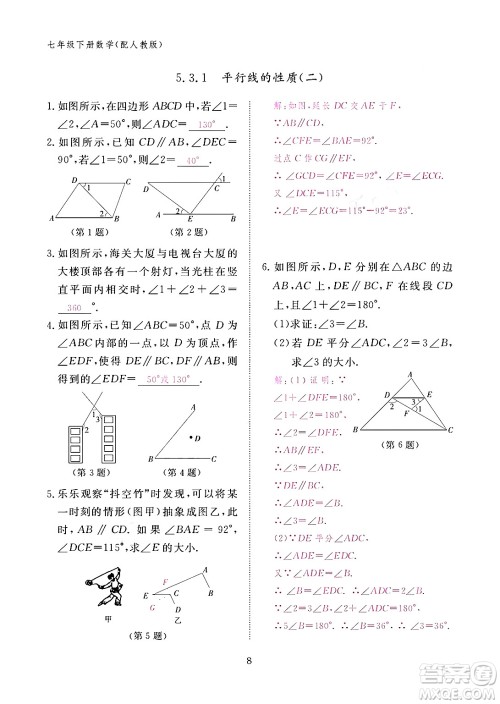 七年级下册数学(配人教版)
5.3.1 平行线的性质(二)
1. 如图所示,在四边形 ABCD 中,若∠1=
∠2,∠A=50°,则∠ABC= 130° .
2. 如图所示,已知 CD∥AB,∠DEC=
90°,若∠1=50°,则∠2= 40° .
D C
1
2
A B
(第 1 题)
C D
1
2
A E B
(第 2 题)
3. 如图所示,海关大厦与电视台大厦的
大楼顶部各有一个射灯,当光柱在竖
直平面内相交时,∠1+∠2+∠3=
360 .
4. 如图所示,已知∠ABC=50°,点 D 为
∠ABC内部的一点,以 D 为顶点,作
∠EDF,使得 DE∥BC,DF∥AB,则
得到的∠EDF= 50°或130° .
1
2 3
(第 3 题)
A
D
B C
(第 4 题)
5. 乐乐观察“抖空竹”时发现,可以将某
一时刻的情形(图甲)抽象成图乙,此
时, AB∥CD. 如果∠BAE=92°,
∠DCE=115°,求∠E的大小.
甲
E B D
F
G A C
乙
(第 5 题)
解:如图,延长 DC 交 AE 于点 F.
∵AB∥CD
∴∠BAE=∠CFE=92°.
过点 C 作 CG∥EF.
∴∠GCD=∠CFE=92°,
∠E=∠ECG.
又∵∠DCE=115°,
∴∠E=∠ECG=115°-92°=23°.
6. 如图所示,D,E 分别在△ABC 的三边
AB,AC 上,DE∥BC,F 在线段 CD
上,且∠1+∠DFE=180°.
(1)求证:∠2=∠ADE;
(2)若 DE 平分∠ADC,∠2=3∠B,
求∠3的大小.
A
D E
3
F 1
2
B C
(第 6 题)
解:(1)证明:∵
∠1+∠DFE=180°,
∠1+∠DFE=180°,
∴∠2=∠DFE.
∴AB∥EF.
∴∠3=∠ADE.
∵DE∥BC,
∴∠B=∠ADE.
∴∠3=∠B.
(2)∵DE 平分∠ADC,
∴∠ADE=∠EDC.
又∵∠ADE=∠B,
∴∠ADC=2∠B.
∵∠2+∠ADC=180°,∠2=3∠B,
∴5∠B=180°,∴∠B=36°,
又∵∠3=∠B,∴∠3=36°.
8